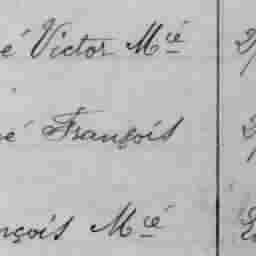 é Victor Mié
é François
nçois Mié